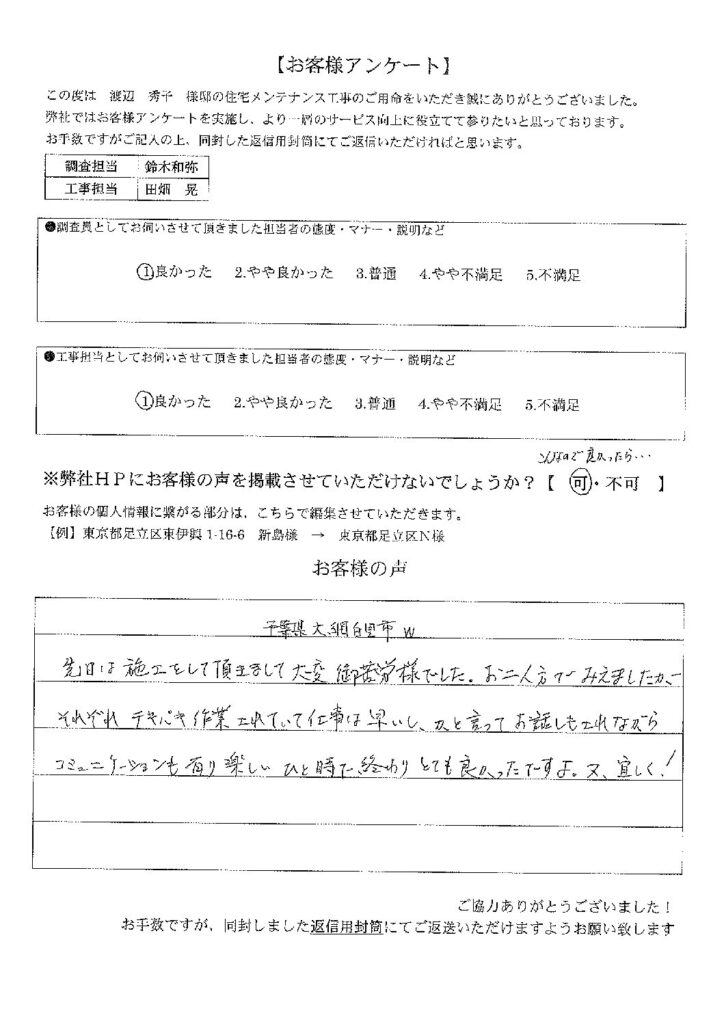 【お客様アンケート】
この度は 渡辺 秀子 様邸の住宅メンテナンス工事のご用命をいただき誠にありがとうございました。
弊社ではお客様アンケートを実施し、より一層のサービス向上に役立てて参りたいと思っております。
お手数ですがご記入の上、同封した返信用封筒にてご返信いただければと思います。
調査担当 鈴木和弥
工事担当 田畑 晃
●調査員としてお伺いさせて頂きました担当者の態度・マナー・説明など
①良かった 2.やや良かった 3.普通 4.やや不満足 5.不満足
●工事担当としてお伺いさせて頂きました担当者の態度・マナー・説明など
①良かった 2.やや良かった 3.普通 4.やや不満足 5.不満足
で良かったら…
※弊社HPにお客様の声を掲載させていただけないでしょうか？【 可・不可 】
お客様の個人情報に繋がる部分は、こちらで編集させていただきます。
【例】東京都足立区東伊興1-16-6 新島様 → 東京都足立区N様
お客様の声
千葉県大網白里市 W
先日は施工をして頂きまして大変御苦労様でした。お二人方でみえましたが、
それぞれテキパキ作業されていて仕事は早いし、かと言ってお話しもされながら
コミュニケーションも有り楽しいひと時で終わりとても良かったですよ。又、宜しく！
ご協力ありがとうございました！
お手数ですが、同封しました返信用封筒にてご返送いただけますようお願い致します